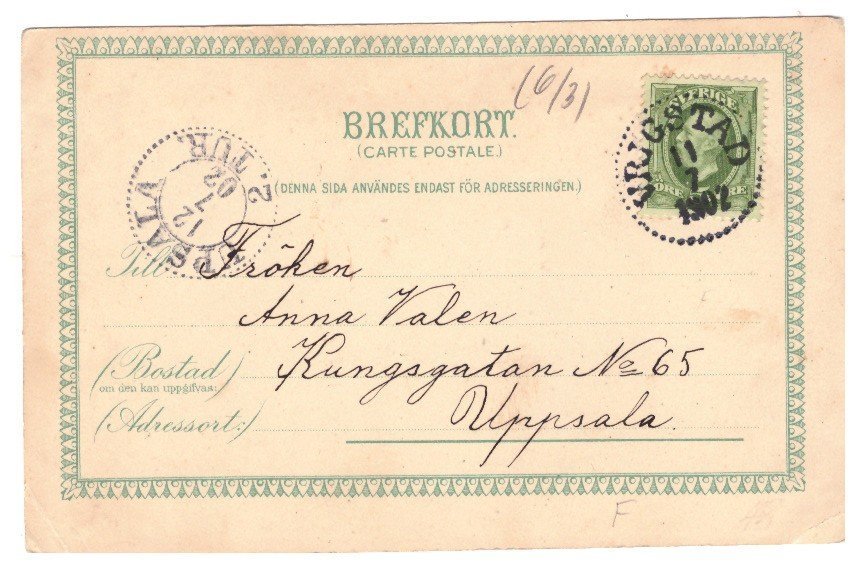 (6/3)
BREFKORT.
(CARTE POSTALE.)
(DENNA SIDA ANVÄNDES ENDAST FÖR ADRESSERINGEN.)
SVERIGE
VRIGSTAD
11
7
1902
UPSALA
12
7
02
2. TUR.
Till Fröken
Anna Valen
(Bostad) Kungsgatan No 65
om den kan uppgifvas:
(Adressort:) Uppsala.
F